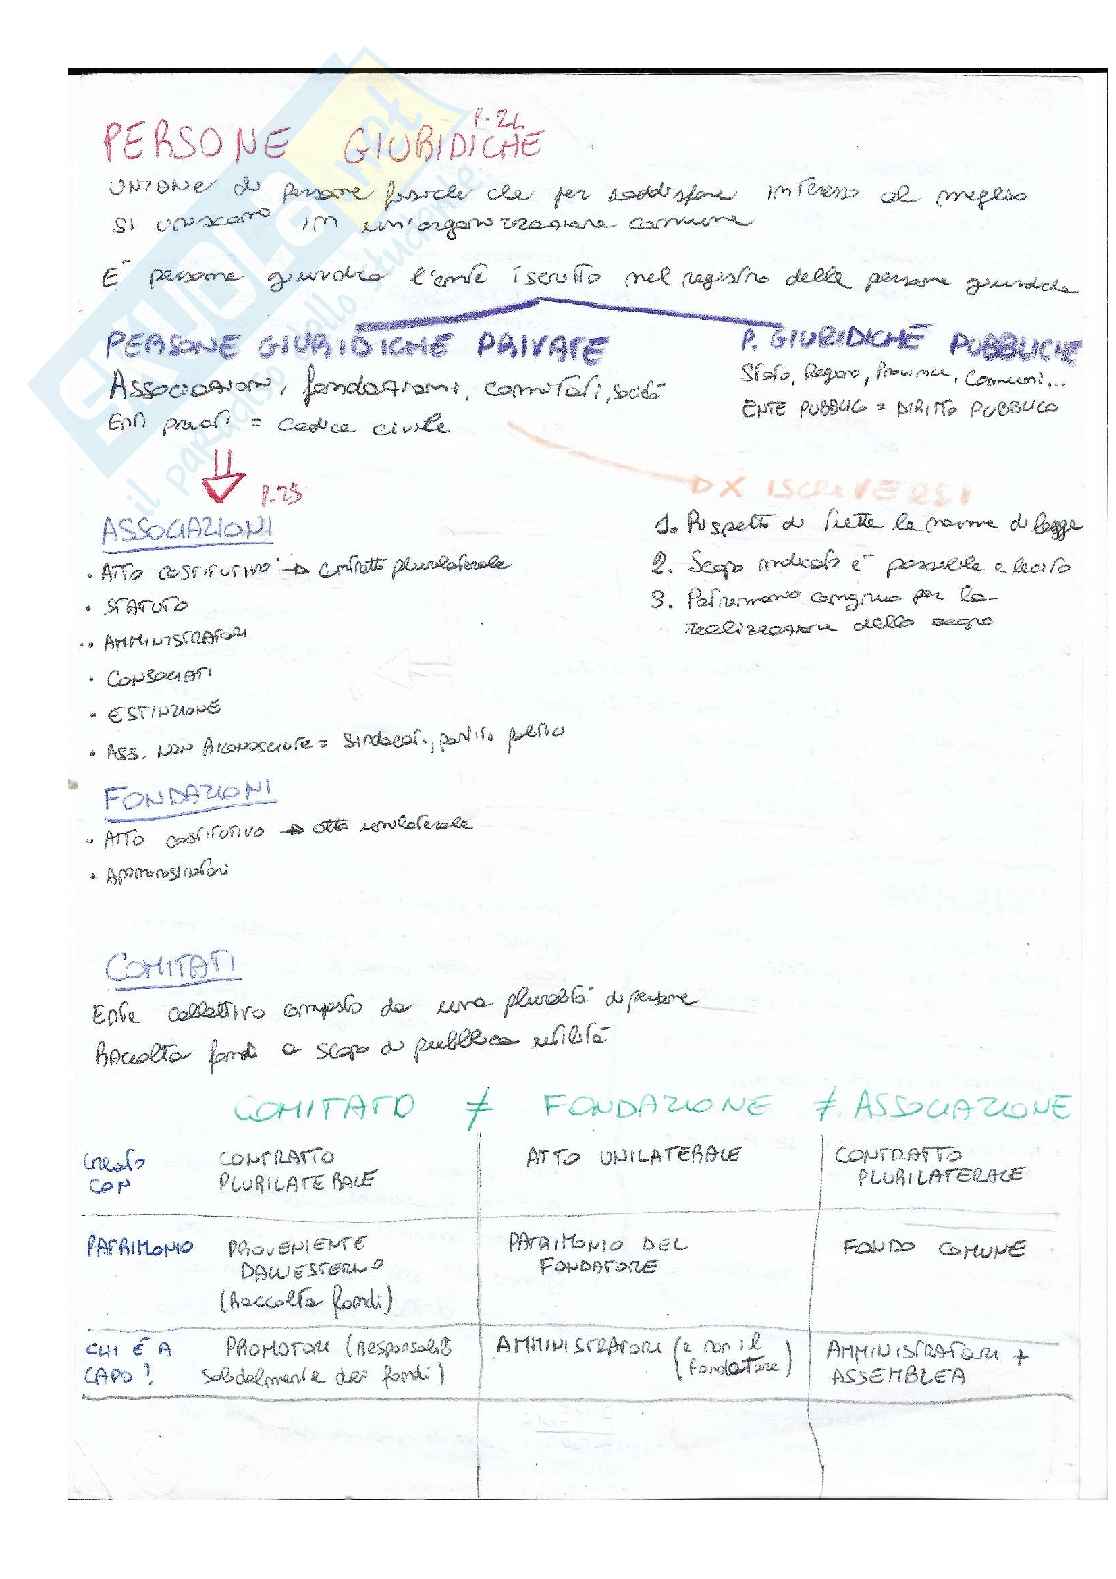 PERSONE GIURIDICHE P. 24
UNIONE di persone fisiche che per soddisfare interesse al meglio
si uniscono in un'organizzazione comune
È persona giuridica l'ente iscritto nel registro delle persone giuridiche
PERSONE GIURIDICHE PRIVATE
P. GIURIDICHE PUBBLICHE
Associazioni, fondazioni, comitati, società
Stato, Regioni, Province, Comuni...
Enti privati = codice civile
ENTE PUBBLICO = DIRITTO PUBBLICO
P. 25
DX ISCRIVERSI
ASSOCIAZIONI
1. Rispetto di tutte le norme di legge
• ATTO COSTITUTIVO → contratto plurilaterale
2. Scopo indicato è possibile e lecito
• STATUTO
3. Patrimonio congruo per la
realizzazione dello scopo
• AMMINISTRATORI
• CONSOCIATI
• ESTINZIONE
• ASS. NON RICONOSCIUTE = sindacati, partito politico
FONDAZIONI
• ATTO COSTITUTIVO → atto unilaterale
• Amministratori
COMITATI
Ente collettivo composto da una pluralità di persone
Raccolta fondi a scopo di pubblica utilità
COMITATO ≠ FONDAZIONE ≠ ASSOCIAZIONE
Creato CON
CONTRATTO PLURILATERALE
ATTO UNILATERALE
CONTRATTO PLURILATERALE
PATRIMONIO
PROVENIENTE DALL'ESTERNO (Raccolta fondi)
PATRIMONIO DEL FONDATORE
FONDO COMUNE
CHI È A CAPO?
PROMOTORI (responsabili solidalmente dei fondi)
AMMINISTRATORI (e non il fondatore)
AMMINISTRATORI + ASSEMBLEA